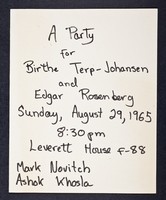 A Party
for
Birthe Terp-Johansen
and
Edgar Rosenberg
Sunday, August 29, 1965
8:30 pm
Leverett House F-88
Mark Novitch
Ashok Khosla